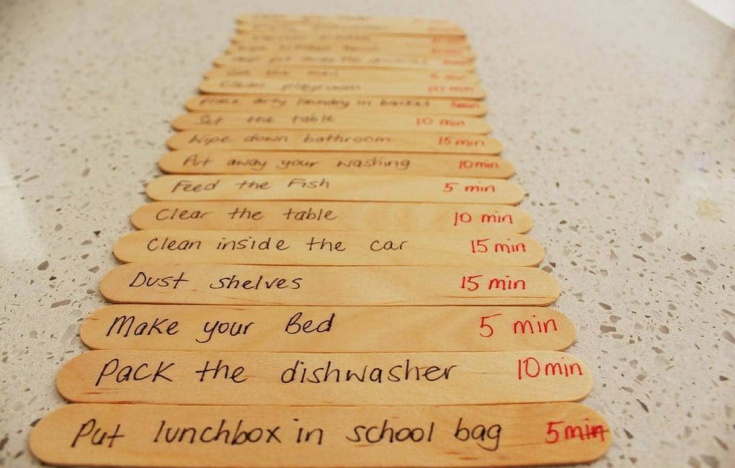 Clean playroom 10 min
Place dirty laundry in basket 5min
Set the table 10 min
Wipe down bathroom 15 min
Put away your washing 10min
Feed the Fish 5 min
Clear the table 10 min
Clean inside the car 15 min
Dust shelves 15 min
Make your Bed 5 min
Pack the dishwasher 10min
Put lunchbox in school bag 5min